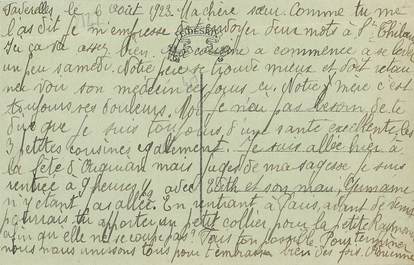 Taverolles, le 6 août 1923. Ma chère sœur. Comme tu me
l'as dit je m'empresse envoyer deux mots à St Chilau
Ici ça va assez bien. a commencé à se lever
un peu samedi. Notre père se trouve mieux et doit retour
ner voir son médecin ces jours ci. Notre mère c'est
toujours ses douleurs. Moi je n'ai pas besoin de te
dire que je suis toujours d'une santé excellente, les
3 petites cousines également. Je suis allée hier à
la fête d' mais juges de ma sagesse je suis
rentrée à 9 heures ½ avec Edith et son mari, Germaine
n'y étant pas allée. En rentrant à Paris, avant de venir
pourrais tu apporter un petit collier pour la petite Raymonde
afin qu'elle ne se coupe pas? Fais ton possible. Pour terminer
nous nous unissons tous pour t'embrasser bien des fois.